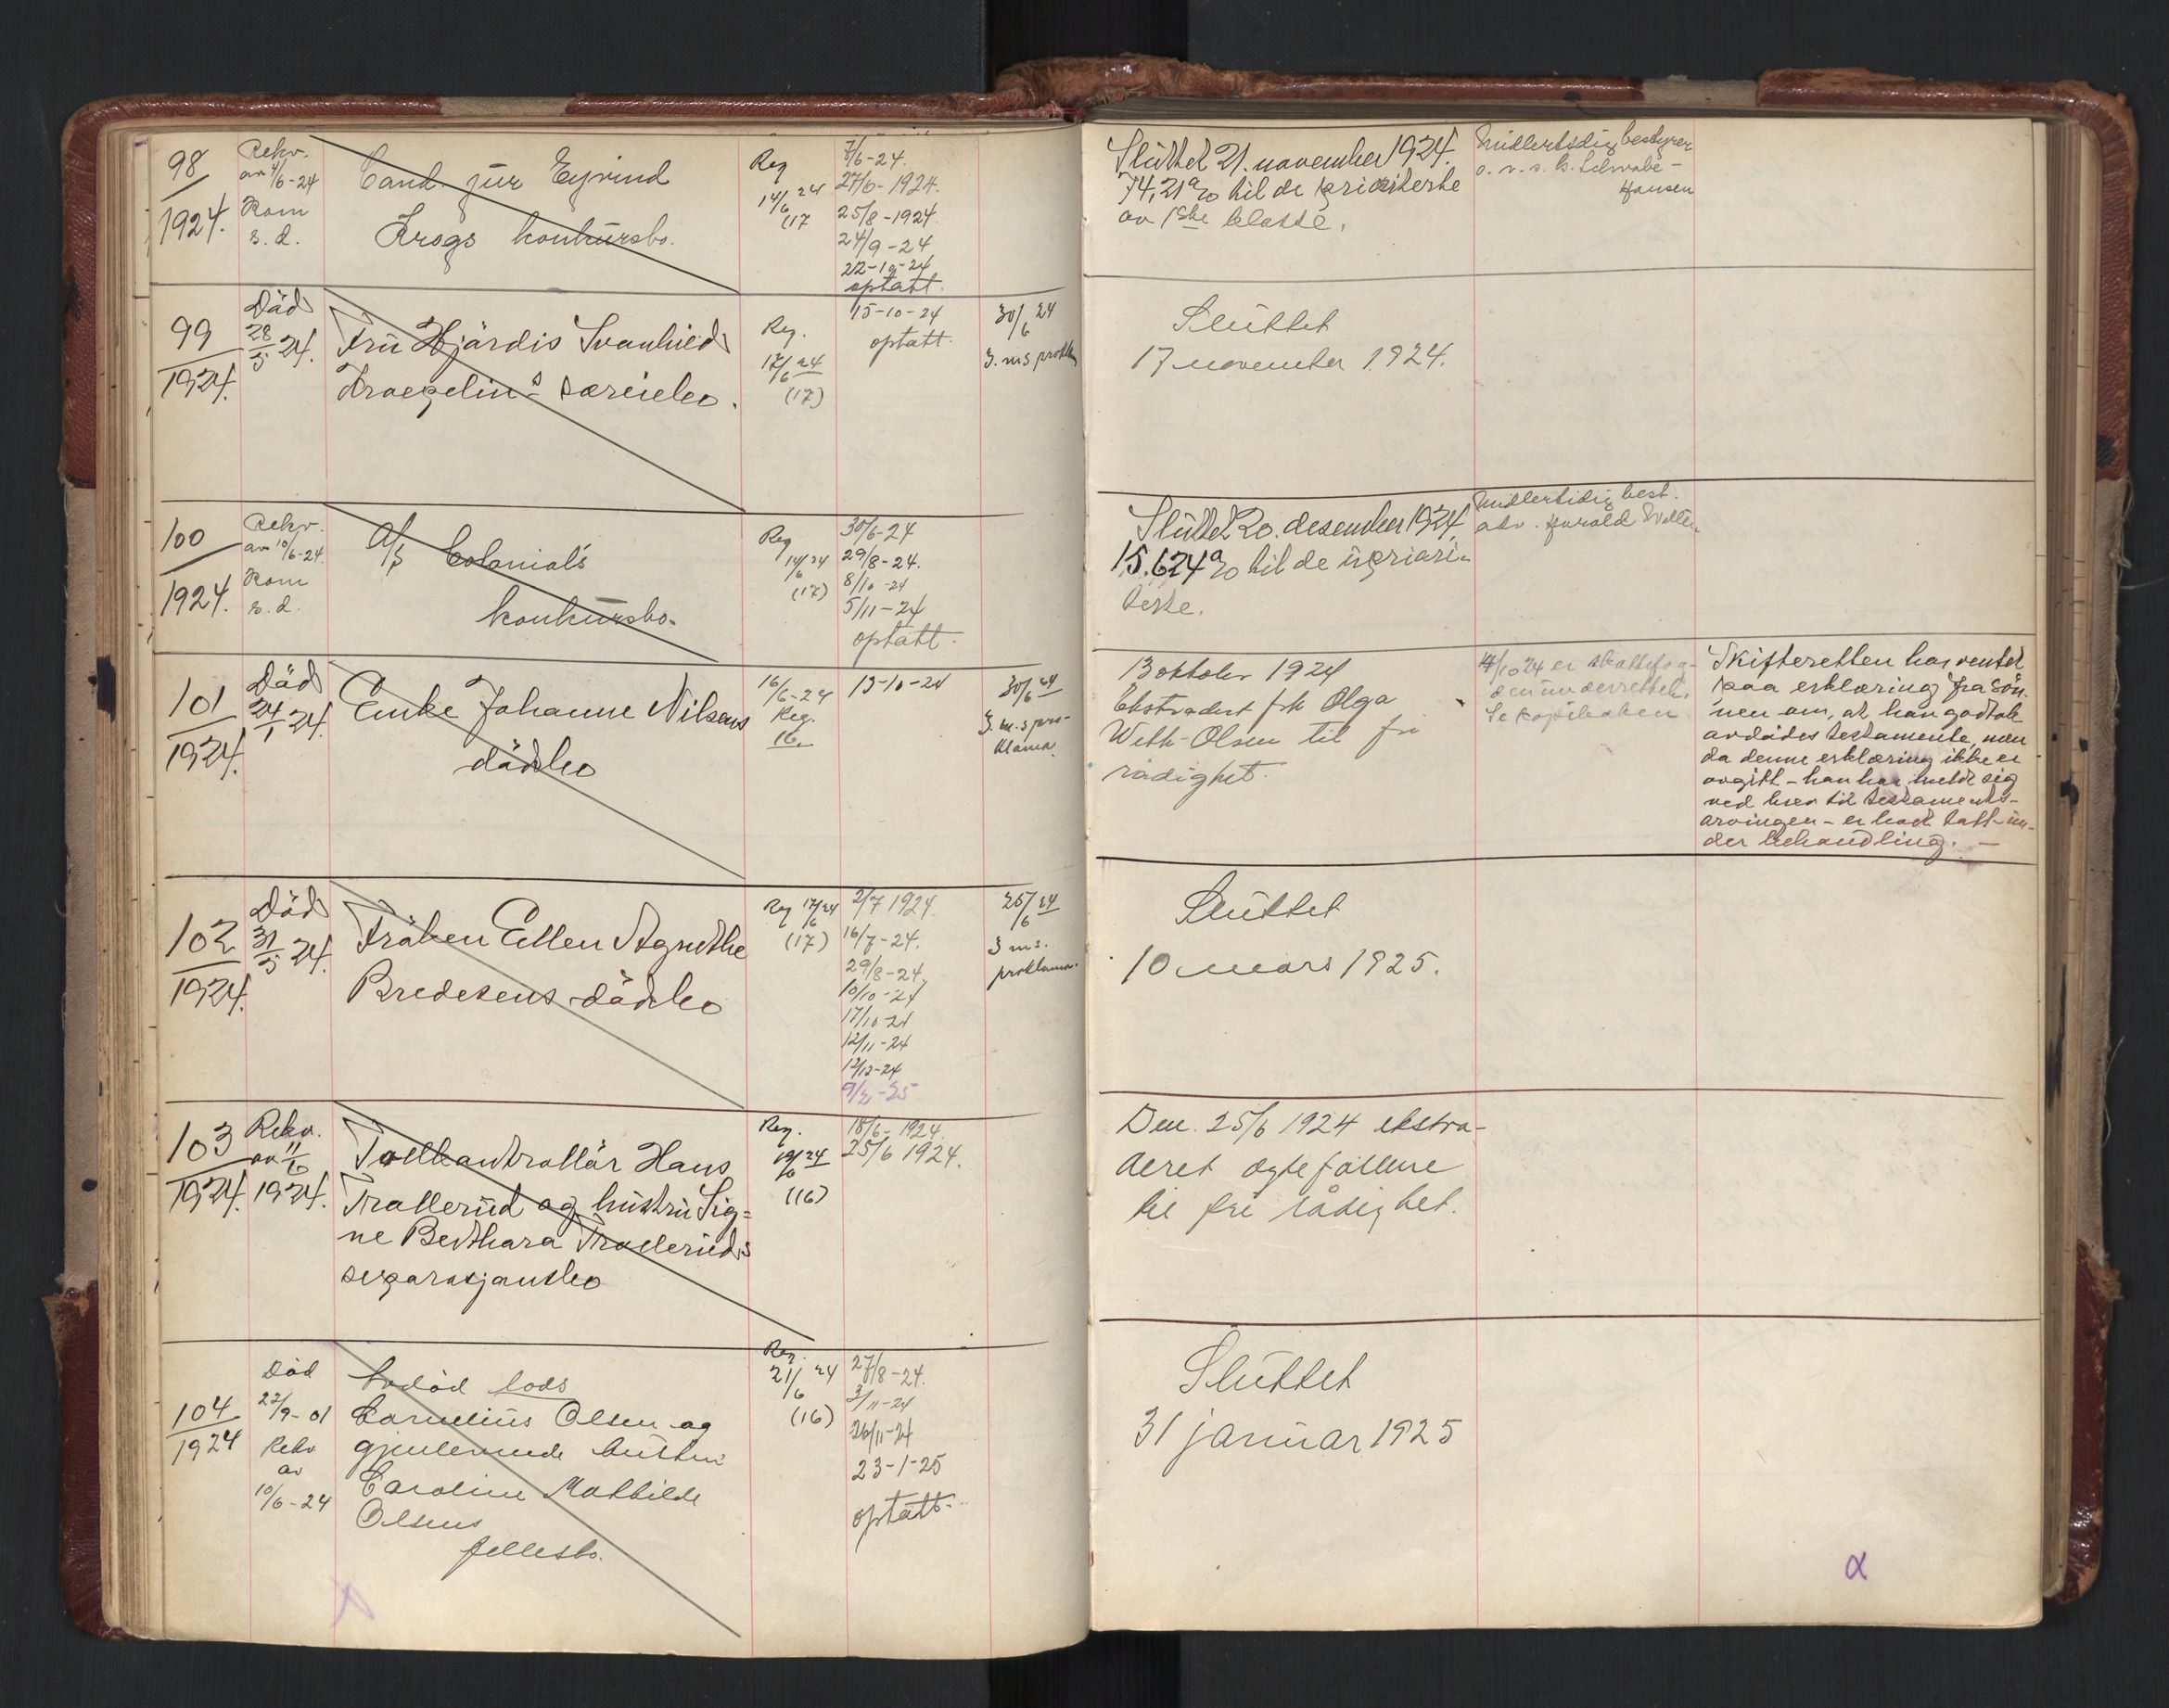 98
1924.
Rekv.
av 4/6-24
Kom
s. d.
Cand. jur Eyvind
Krogs konkursbo.
Reg
14/6 24
(17
7/6-24.
27/6-1924.
25/8-1924.
24/9-24
22-10-24
optatt.
Sluttet 21. november 1924.
74,21% til de prioriterte
av 1ste klasse.
Midlertidig bestyrer
o. r. s. C. Schwabe-
Hansen
99
1924.
Död
28/5 24.
Fru Hjördis Svanhild
Kraepelin's særeiebo.
Reg.
17/6 24
(17)
15-10-24
optatt.
30/6 24
3. m.s prokl.
Sluttet
17 november 1924.
100
1924.
Rekv.
av 10/6-24.
Kom
s. d.
A/S Colonial's
konkursbo.
Reg
14/6 24
(17)
30/6-24
29/8-24.
8/10-24
5/11-24
optatt.
Sluttet 20. desember 1924,
15,624% til de upriori-
terte.
Midlertidig best.
adv. Harald
101
1924.
Död
24/1 24.
Enke Johanne Nilsens
dödsbo
16/6-24
Reg.
16
13-10-24
30/6 24
3. m.s pro-
klama.
13 oktober 1924
Ekstradert frk Olga
With-Olsen til fri
rådighet.
14/10 24 er skattefog-
den underrettet.
Se kopiboken
Skifteretten har ventet
paa erklæring fra søn-
nen om, at han godtok
avdødes testamente, men
da denne erklæring ikke er
avgitt - han har meldt sig
ved brev til testaments-
arvingen - er boet tatt un-
der behandling. -
102
1924.
Död
31/5 24.
Fröken Ellen Agnethe
Bredesens dödsbo
Reg 17/6 24
(17)
2/7 1924.
16/7-24.
29/8-24.
10/10-24
17/10-24
12/11-24
12/12-24
9/2-25
25/6 24
3 m.s.
proklama.
Sluttet
10 mars 1925.
103
1924.
Rekv.
av 11/6
1924.
Tollkontrollör Hans
Trollerud og hustru Sig=
ne Berthara Trolleruds
separasjonsbo
Reg.
19/6 24
(16)
18/6-1924.
25/6 1924.
Den 25/6 1924 ekstra-
deret ægtefollene
til fri rådighet.
104
1924
Död
22/9-01
Rekv
av
10/6-24
Avdöd lods
Cornelius Olsen og
gjenlevende hustru
Caroline Mathilde
Olsens
fellesbo.
Reg.
21/6 24
(16)
27/8-24.
3/11-24
26/11-24
23-1-25
optatt.
Sluttet
31 januar 1925